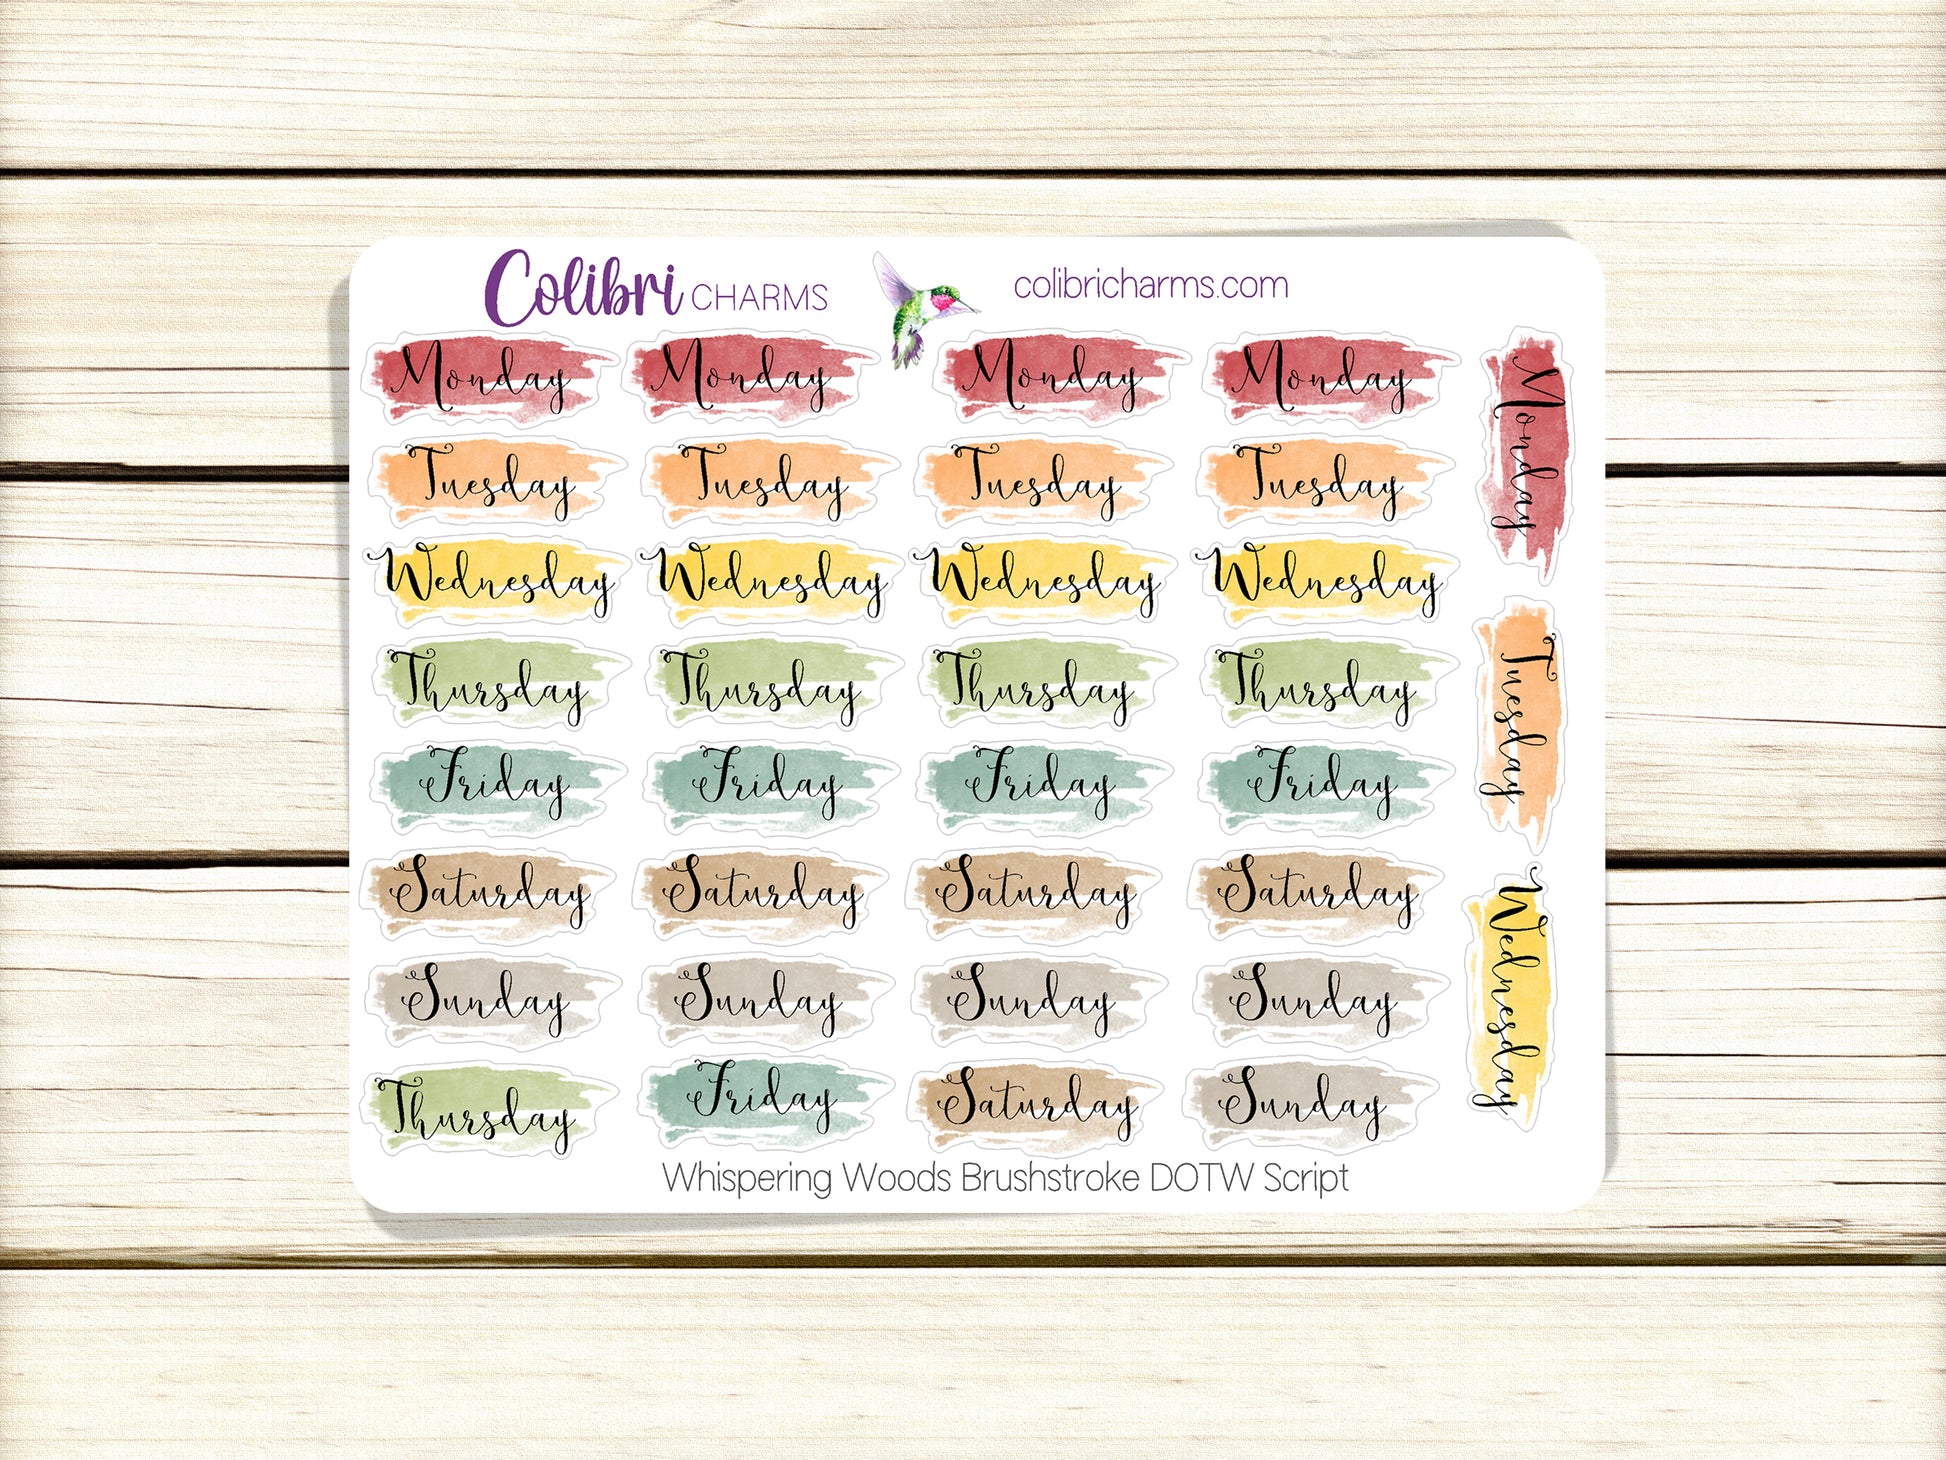 Colibri CHARMS
colibricharms.com
Monday Monday Monday Monday
Tuesday Tuesday Tuesday Tuesday
Wednesday Wednesday Wednesday Wednesday
Thursday Thursday Thursday Thursday
Friday Friday Friday Friday
Saturday Saturday Saturday Saturday
Sunday Sunday Sunday Sunday
Thursday Friday Saturday Sunday
Monday
Tuesday
Wednesday
Whispering Woods Brushstroke DOTW Script